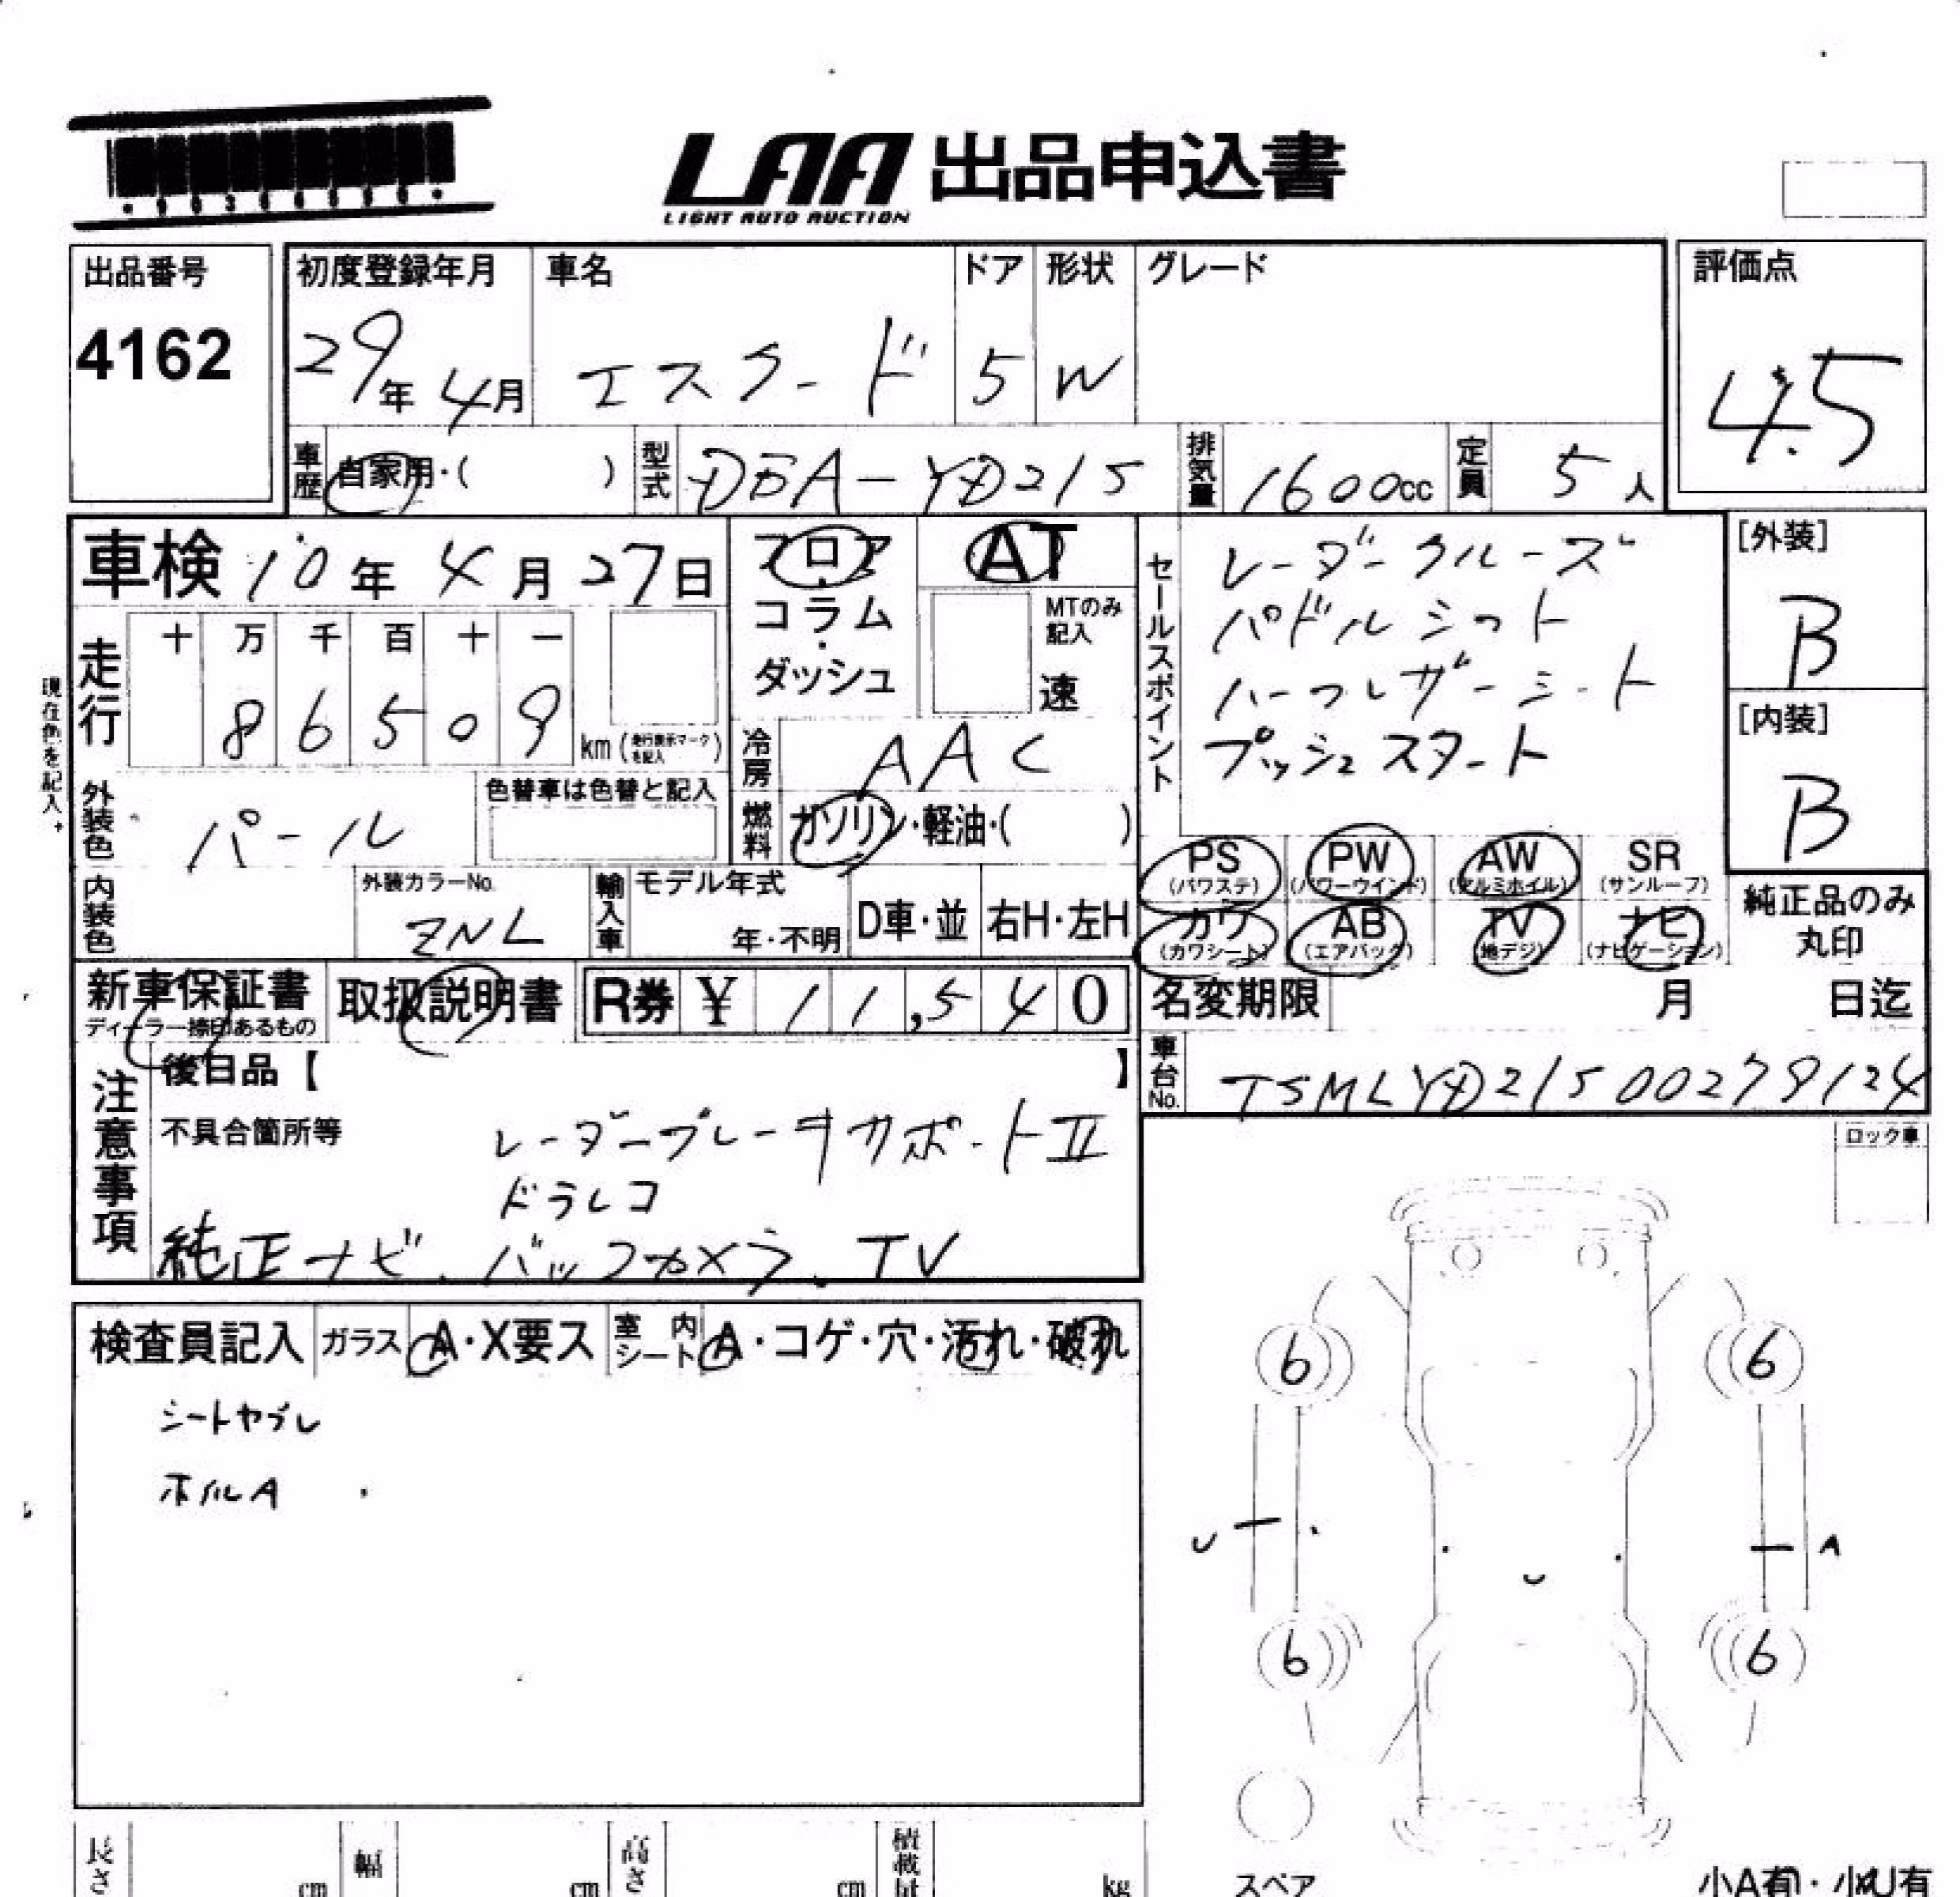 LAA 出品申込書
LIGHT AUTO AUCTION
出品番号
4162
初度登録年月
29年4月
車名
エスクード
ドア
5
形状
W
グレード
評価点
4.5
車歴 自家用・( )
型式 DBA-YD21S
排気量 1600cc
定員 5人
車検 10年 4月 27日
フロア・コラム・ダッシュ
AT
MTのみ記入
速
セールスポイント
レーダークルーズ
パドルシフト
ハーフレザーシート
プッシュスタート
[外装]
B
[内装]
B
現在色を記入
走行
十 万 千 百 十 一
8 6 5 0 9 km (走行表示マークを記入)
冷房 AAC
燃料 ガソリン・軽油・( )
外装色 パール
色替車は色替と記入
内装色
外装カラーNo.
ZNL
輸入車
モデル年式
年・不明
D車・並
右H・左H
PS (パワステ)
PW (パワーウインド)
AW (アルミホイル)
SR (サンルーフ)
カワ (カワシート)
AB (エアバック)
TV (地デジ)
ナビ (ナビゲーション)
純正品のみ
丸印
新車保証書
ディーラー捺印あるもの
取扱説明書
R券 ¥ 11,540
名変期限 月 日迄
車台No. TSMLYD21S00279124
注意事項
後日品【 】
不具合箇所等
レーダーブレーキサポートII
ドラレコ
純正ナビ、バックカメラ、TV
ロック車
検査員記入
ガラス A・X要ス
室内シート A・コゲ・穴・汚れ・破れ
シートヤブレ
ホイルA
6 6
U A
U
6 6
スペア
長さ cm
幅 cm
高さ cm
積載量 kg
小A有・小U有